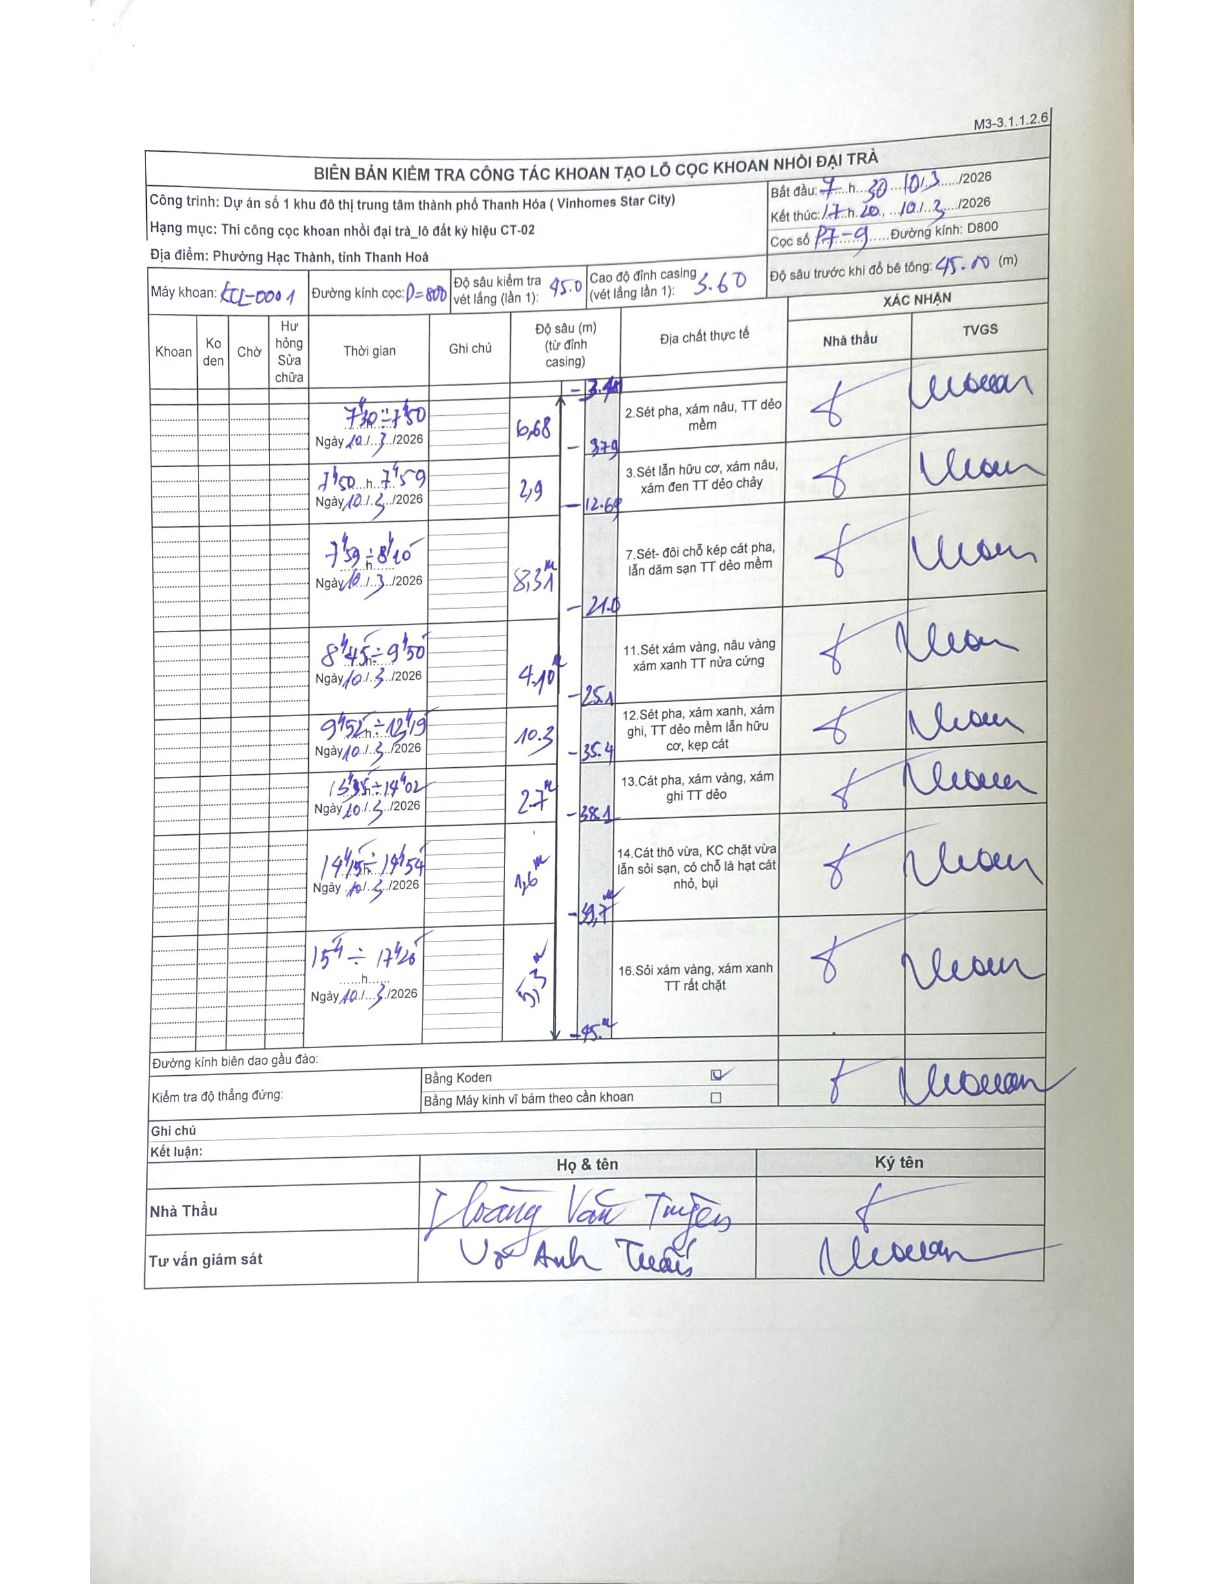 M3-3.1.1.2.6
BIÊN BẢN KIỂM TRA CÔNG TÁC KHOAN TẠO LỖ CỌC KHOAN NHỒI ĐẠI TRÀ
Công trình: Dự án số 1 khu đô thị trung tâm thành phố Thanh Hóa ( Vinhomes Star City)
Hạng mục: Thi công cọc khoan nhồi đại trà_lô đất ký hiệu CT-02
Địa điểm: Phường Hạc Thành, tỉnh Thanh Hoá
Bắt đầu: 7 h 30 10/3 /2026
Kết thúc: 17 h 20, 10/3 /2026
Cọc số P7-9 Đường kính: D800
Máy khoan: KCL-0001
Đường kính cọc: D=800
Độ sâu kiểm tra vét lắng (lần 1): 45.0
Cao độ đỉnh casing (vét lắng lần 1): 3.60
Độ sâu trước khi đổ bê tông: 45.00 (m)
Khoan
Ko den
Chờ
Hư hỏng Sửa chữa
Thời gian
Ghi chú
Độ sâu (m) (từ đỉnh casing)
Địa chất thực tế
XÁC NHẬN
Nhà thầu
TVGS
7h30 ÷ 7h50
Ngày 10/3/2026
6,68
2.Sét pha, xám nâu, TT dẻo
mềm
7h50 h 7h59
Ngày 10/3/2026
2,9
12.69
3.Sét lẫn hữu cơ, xám nâu,
xám đen TT dẻo chảy
7h59 ÷ 8h10
Ngày 10/3/2026
8,31m
21.0
7.Sét- đôi chỗ kép cát pha,
lẫn dăm sạn TT dẻo mềm
8h45 ÷ 9h50
Ngày 10/3/2026
4.10m
25.1
11.Sét xám vàng, nâu vàng
xám xanh TT nửa cứng
9h52 ÷ 12h19
Ngày 10/3/2026
10.3
35.4
12.Sét pha, xám xanh, xám
ghi, TT dẻo mềm lẫn hữu
cơ, kẹp cát
13h35 ÷ 14h02
Ngày 10/3/2026
2.7m
38.1
13.Cát pha, xám vàng, xám
ghi TT dẻo
14h15 ÷ 14h54
Ngày 10/3/2026
1,6m
39,7m
14.Cát thô vừa, KC chặt vừa
lẫn sỏi sạn, có chỗ là hạt cát
nhỏ, bụi
15h ÷ 17h20
h
Ngày 10/3/2026
5,3m
45.m
16.Sỏi xám vàng, xám xanh
TT rất chặt
Đường kính biên dao gầu đào:
Kiểm tra độ thẳng đứng:
Bằng Koden
Bằng Máy kinh vĩ bám theo cần khoan
Ghi chú
Kết luận:
Họ & tên
Ký tên
Nhà Thầu
Hoàng Văn Truyền
Tư vấn giám sát
Võ Anh Tuấn